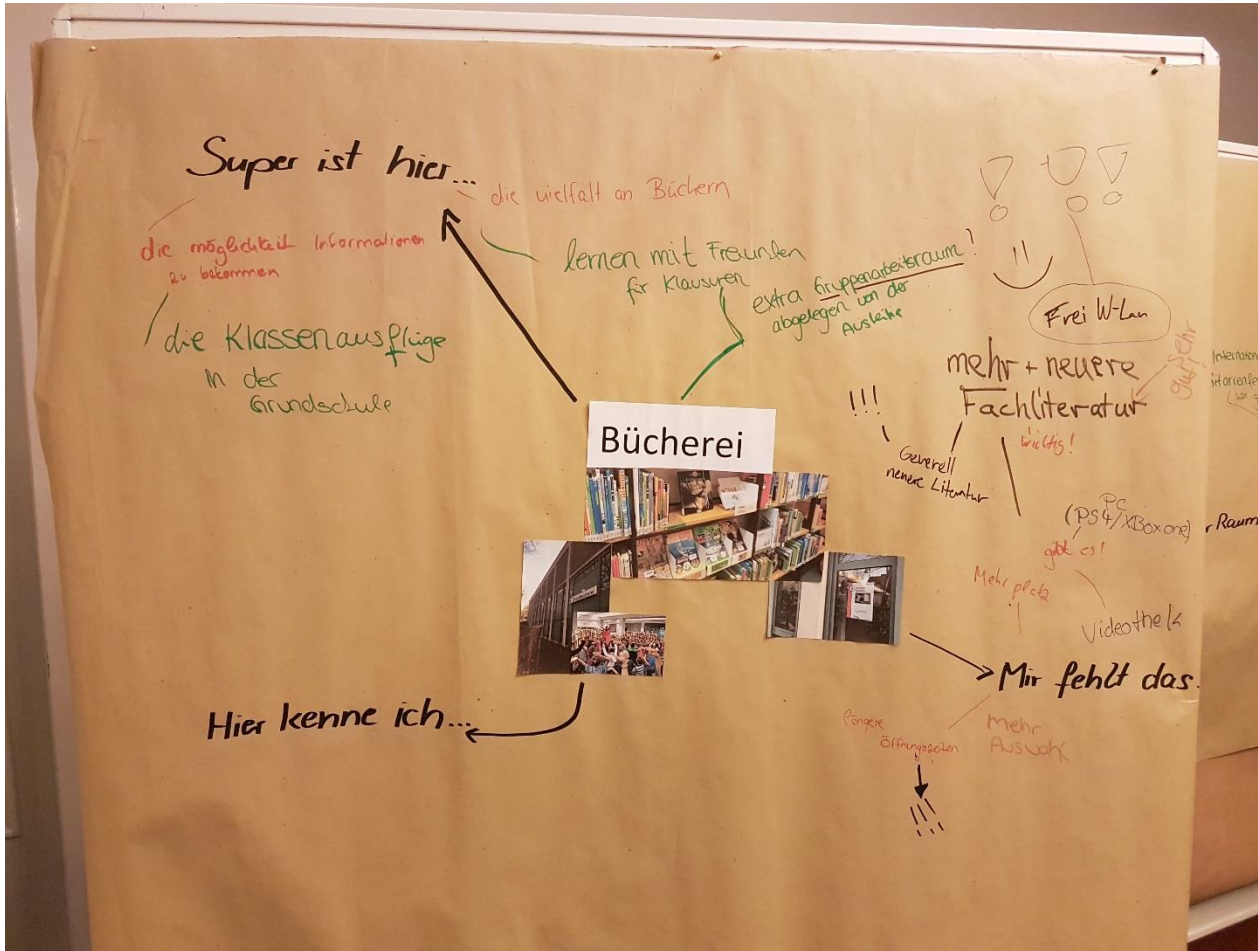 Super ist hier...
die vielfalt an Büchern
die möglichkeit Informationen
zu bekommen
lernen mit Freunden
für Klausuren
extra Gruppenarbeitsraum!
abgelegen von der
Ausleihe
die Klassenausflüge
in der
Grundschule
Frei W-Lan
mehr + neuere
Fachliteratur
sehr
gut!
wichtig!
!!!
Generell
neuere Literatur
Bücherei
PC
(PS4/XBox one)
gibt es!
Videothek
Mehr platz
Mir fehlt das.
längere
Öffnungszeiten
!!!
mehr
Auswahl
Hier kenne ich...
Internation
r Raum